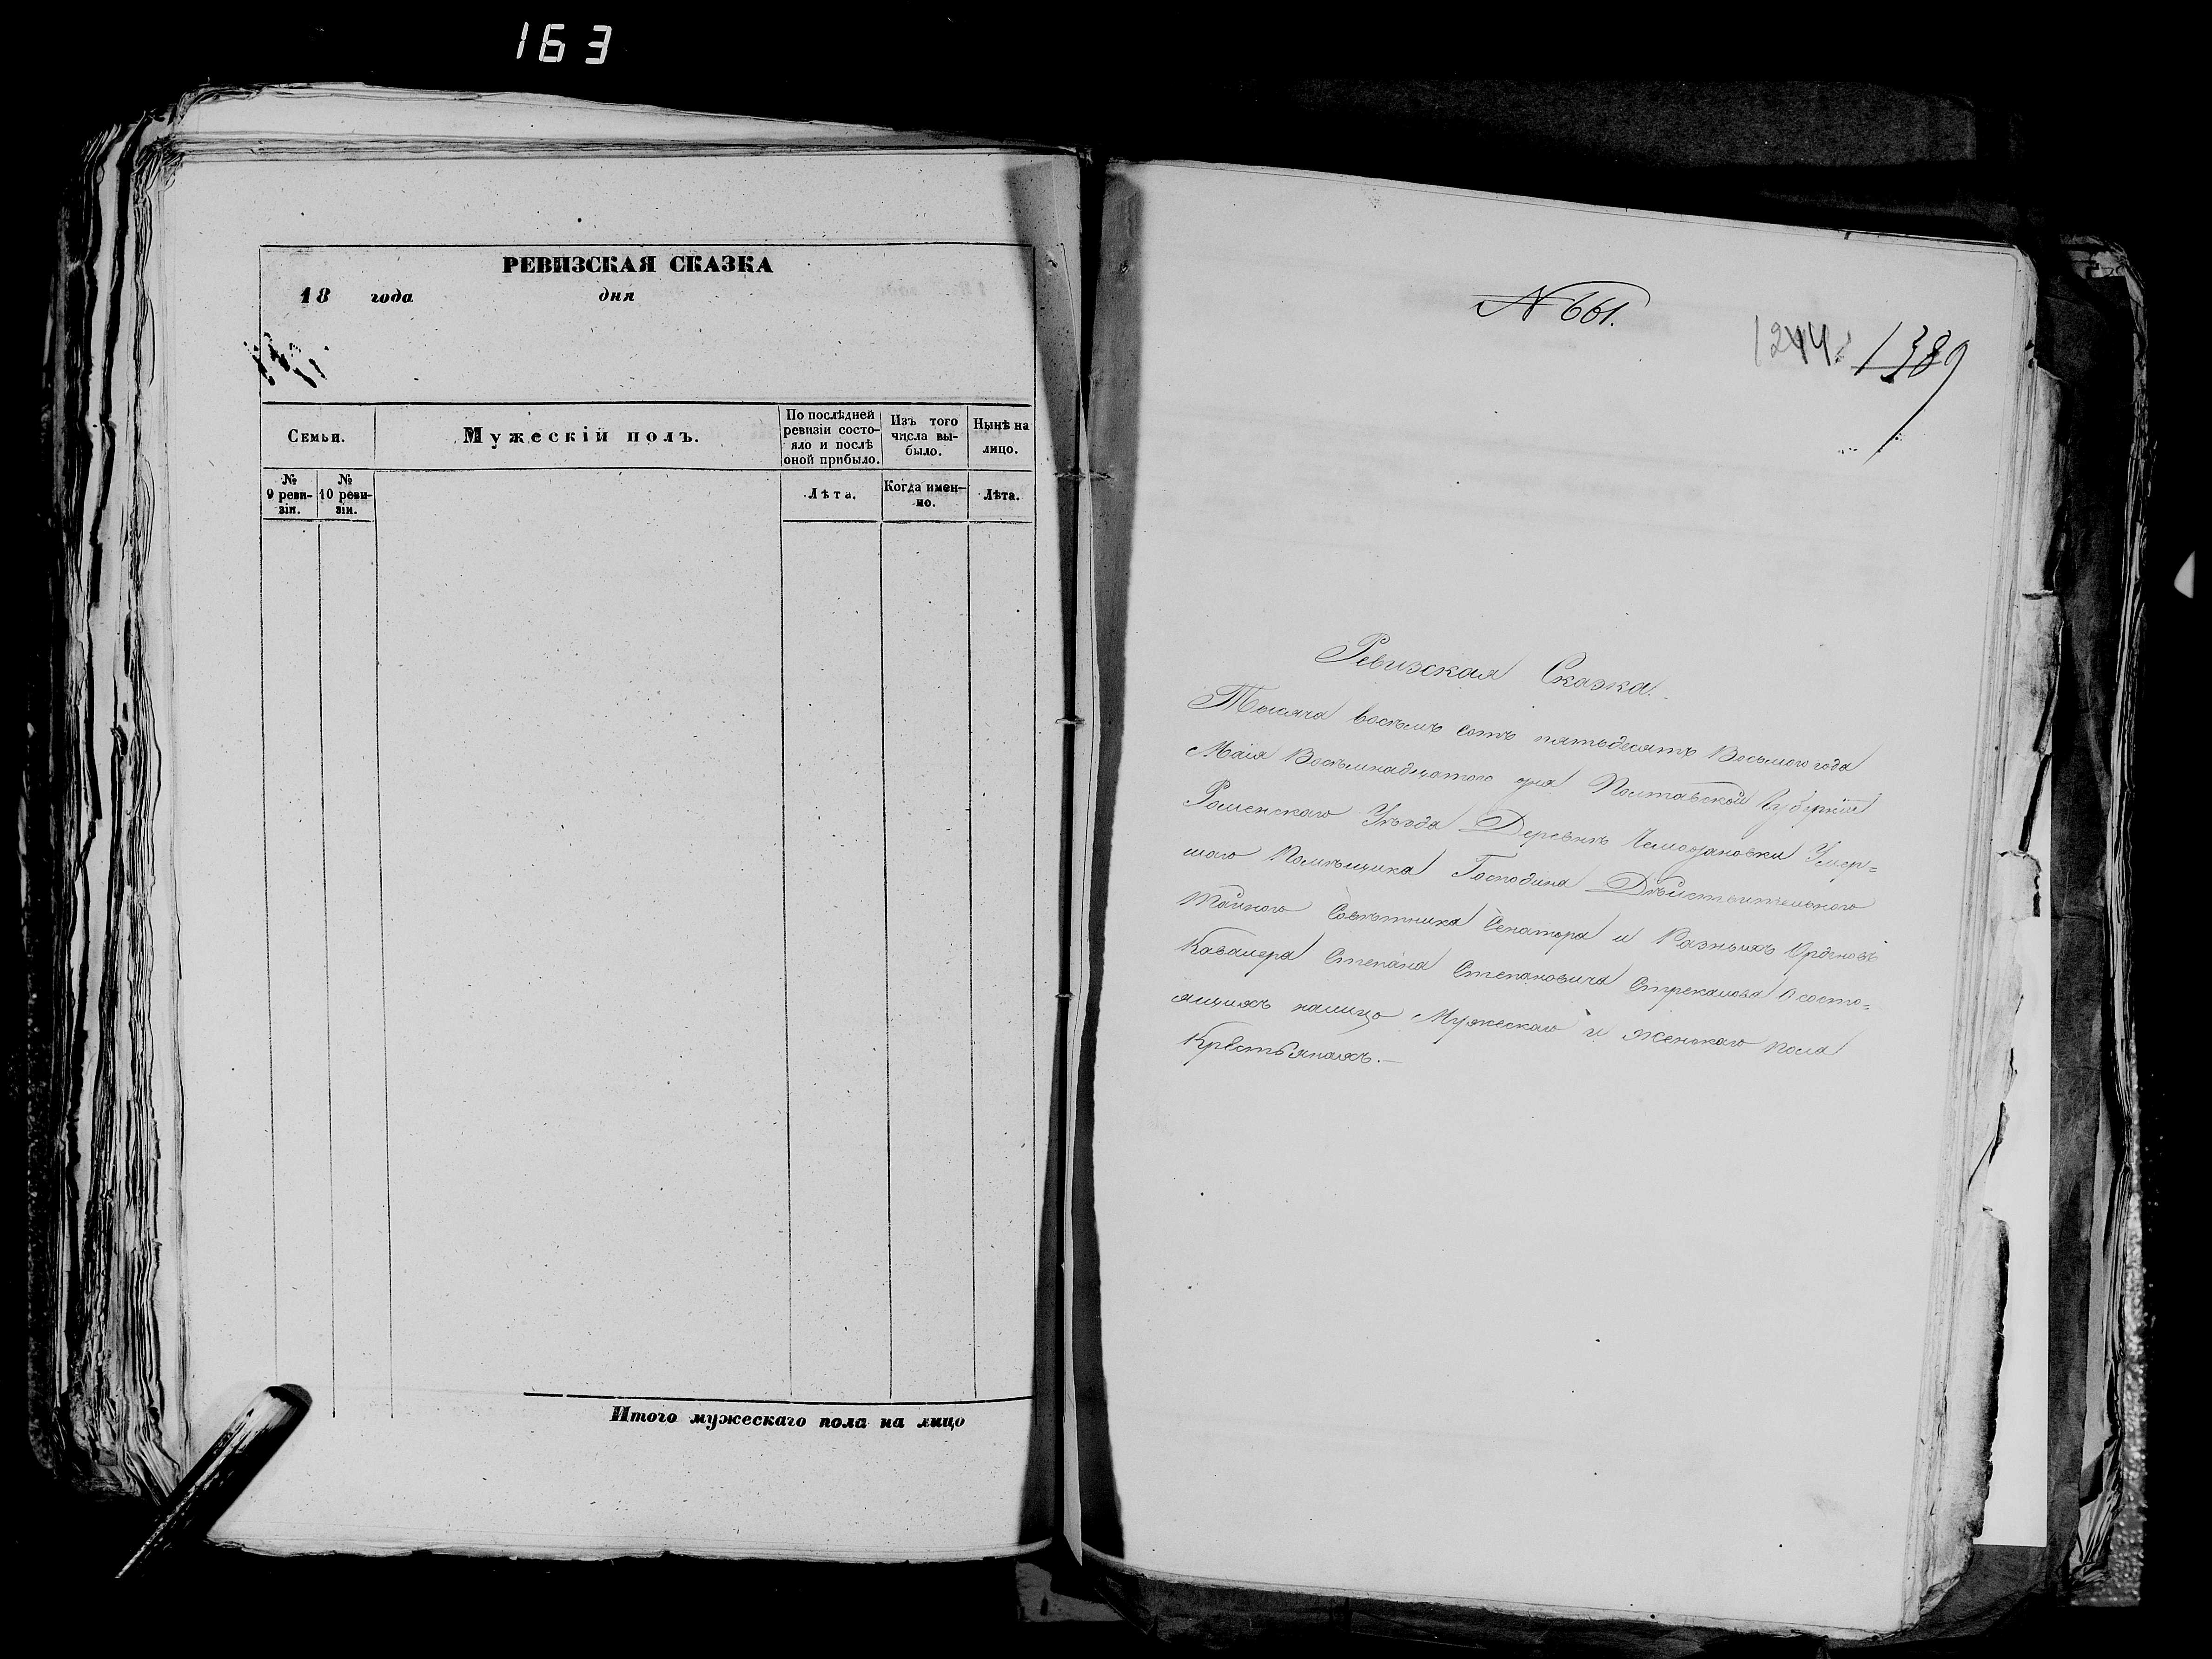 163
РЕВИЗСКАЯ СКАЗКА
18 года дня
Семьи.
Мужескій полъ.
По послѣдней ревизіи состо-
яло и послѣ оной прибыло.
Изъ того числа вы-
было.
Нынѣ на лицо.
№ 9 реви-
зіи.
№ 10 реви-
зіи.
Лѣта.
Когда имен-
но.
Лѣта.
Итого мужескаго пола на лицо
№ 661.
1244 1389
Ревизская Сказка.
Тысяча восѣмъ сотъ пятьдесятъ Восьмого года
Маія Восѣмнадцатого дня Полтавской Губерніи
Роменскаго Уѣзда Деревнѣ Умер=
шаго Помѣщика Господина Дѣйствительного
Тайного Совѣтника Сенатора и Разныхъ Орденовъ
Кавалера Степана Степановича Стрекалова О состо=
ящихъ налицо Мужескаго и Женскаго пола
Крестьянахъ.—